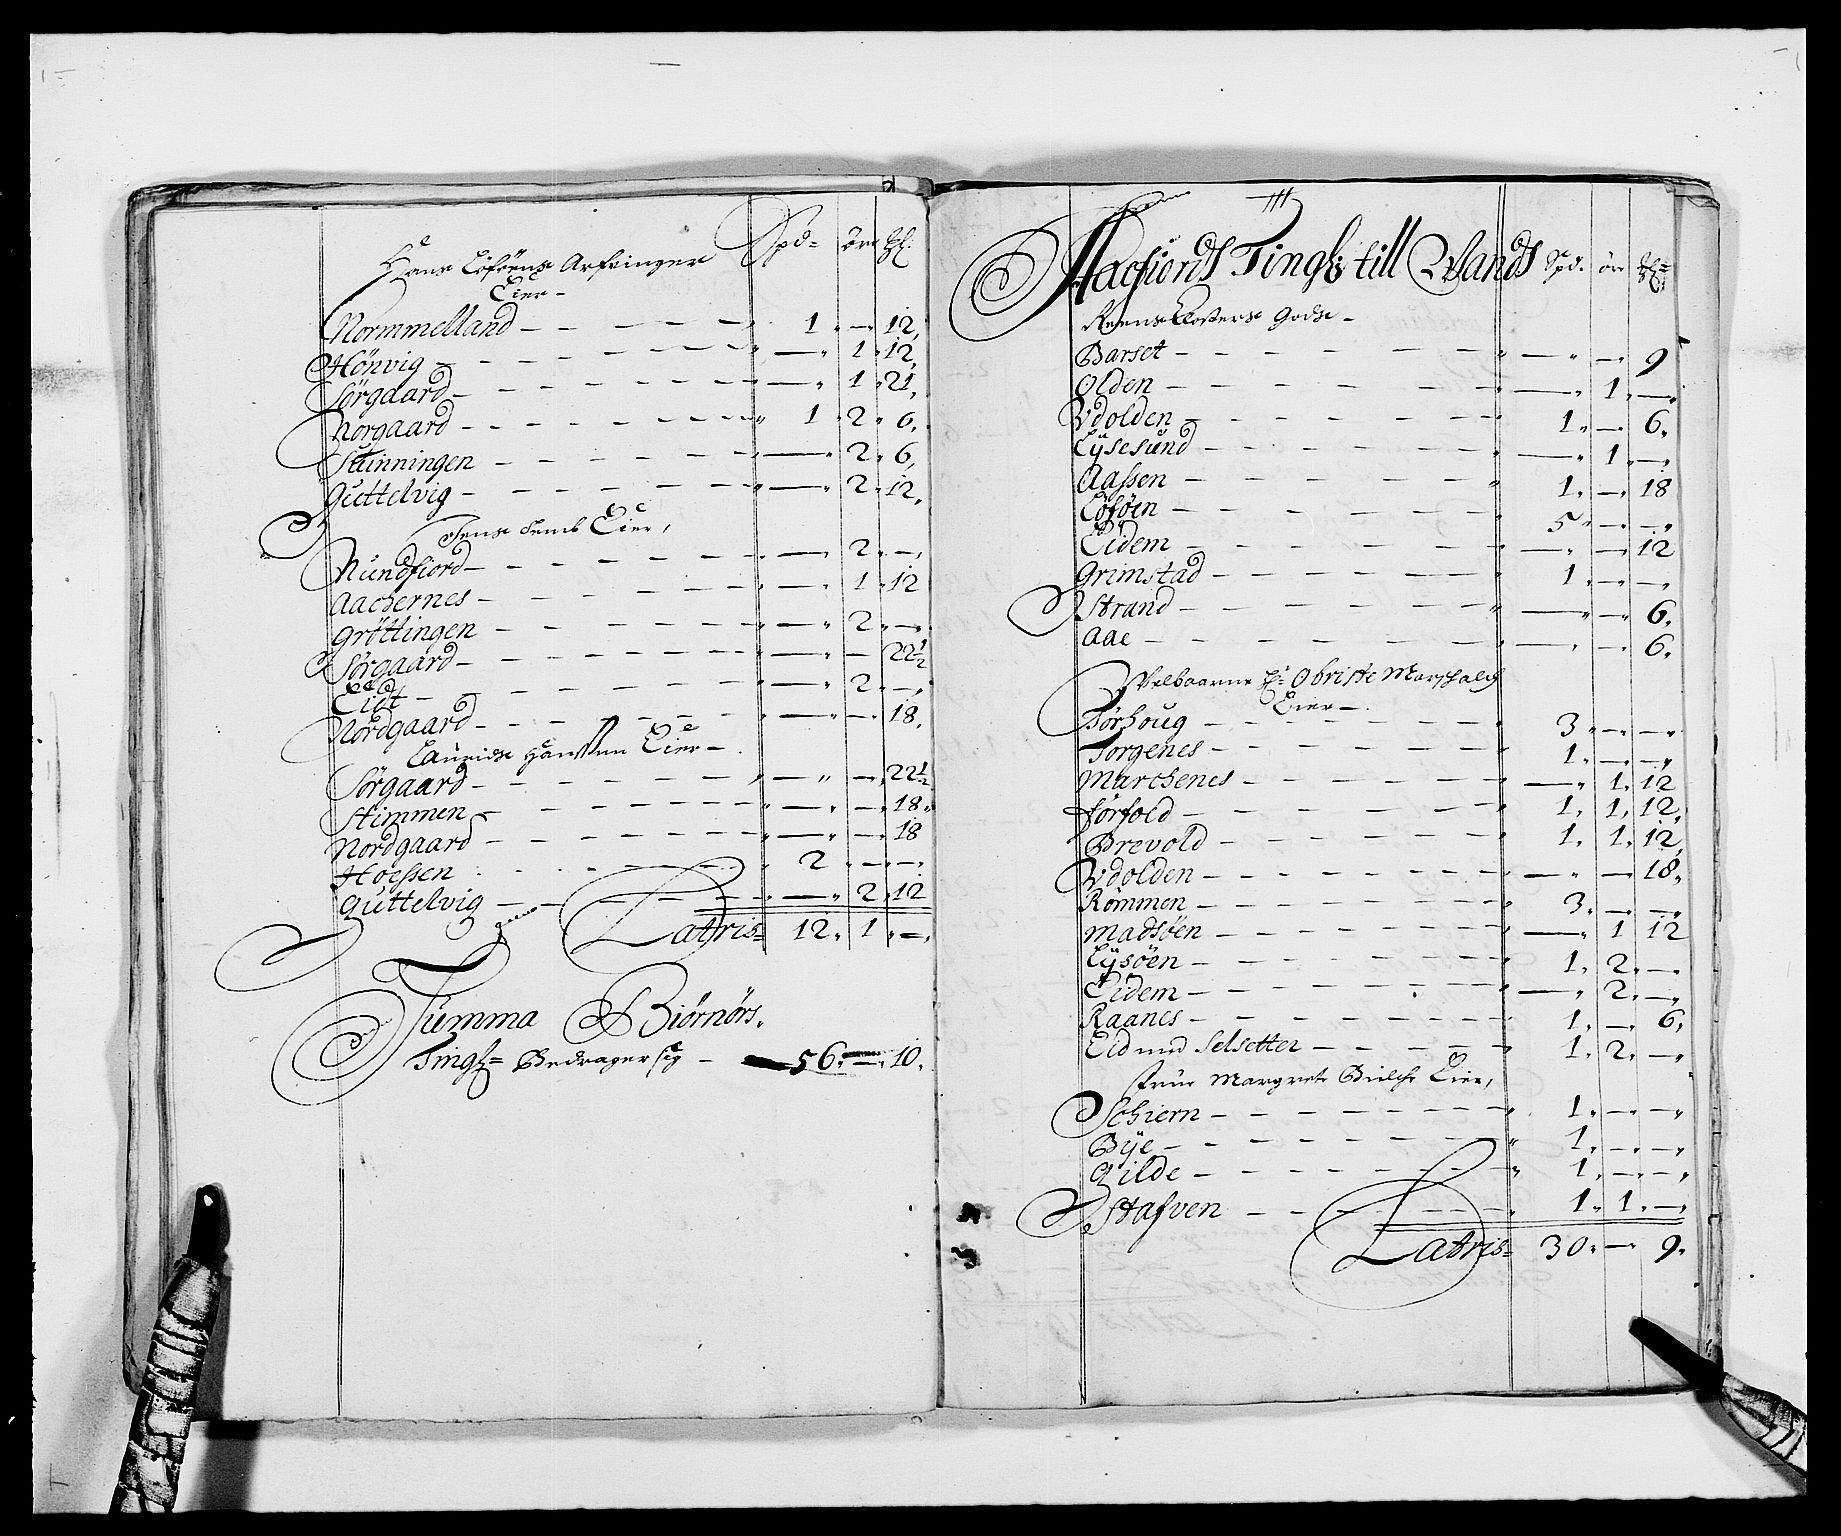 Spd= öre
Hans Löföens Arfvinger
Eier –
Normmelland – 1 „ — „ 12
Hönvig – — „ 1 „ 12
Sörgaard – — „ 1 „ 21
Norgaard – 1 „ 2 „ 6
Stinningen – — „ 2 „ 6
Guttelvig – — „ 2 „ 12
Jens Eier
Nundfiord – — „ 2 „ —
Aachernes – — „ 1 „ 12
Gröttingen – — „ 2 „ —
Sörgaard – — „ — 22½
Eidt – — „ 2 „ —
Nordgaard – — „ — „ 18
Lauridz Hanssen Eier –
Sörgaard – — „ — „ 22½
Stimmen – — „ — „ 18
Nordgaard – — „ — „ 18
Hoessen – 2 „ — „ —
Guttelvig – — „ 2 „ 12
Latris= 12 „ 1 „ —
Summa Biörnörs
Tingh= Bedrager sig – 56 „ — „ 10
Aaefiords Tingh till Utlands Spd. öre
Reens Closters Gods –
Barset – — „ — „ 9
Olden – — „ 1 „ —
Udolden – 1 „ — „ 6
Lysesund – — „ 1 „ —
Aassen – 1 „ — „ 18
Löföen – 5 „ — „ —
Eidem – — „ — „ 12
Grimstad – 1 „ — „ —
Strand – — „ — „ 6
Aae – — „ — „ 6
Velbaarne Hr= Obriste Marschalch
Eier –
Börhoug – 3 „ — „ —
Torgenes – 1 „ — „ —
Marchenes – — „ 1 „ 12
Hörfold – 1 „ 1 „ 12
Brevold – 1 „ 1 „ 12
Udolden – — „ — 18
Römmen – 3 „ — „ —
Madsöen – — „ 1 „ 12
Lysöen – 1 „ 2 „ —
Eidem – — „ 2 „ —
Raanes – 1 „ — „ 6
Eid med Selsetter – 1 „ 2 „ —
Frue Margrete Bielche Eier
Schiern – 1 „ — „ —
Bÿe – 1 „ — „ —
Gilde – 1 „ — „ —
Stafven – 1 „ 1 „ —
Latris= 30 „ — „ 9